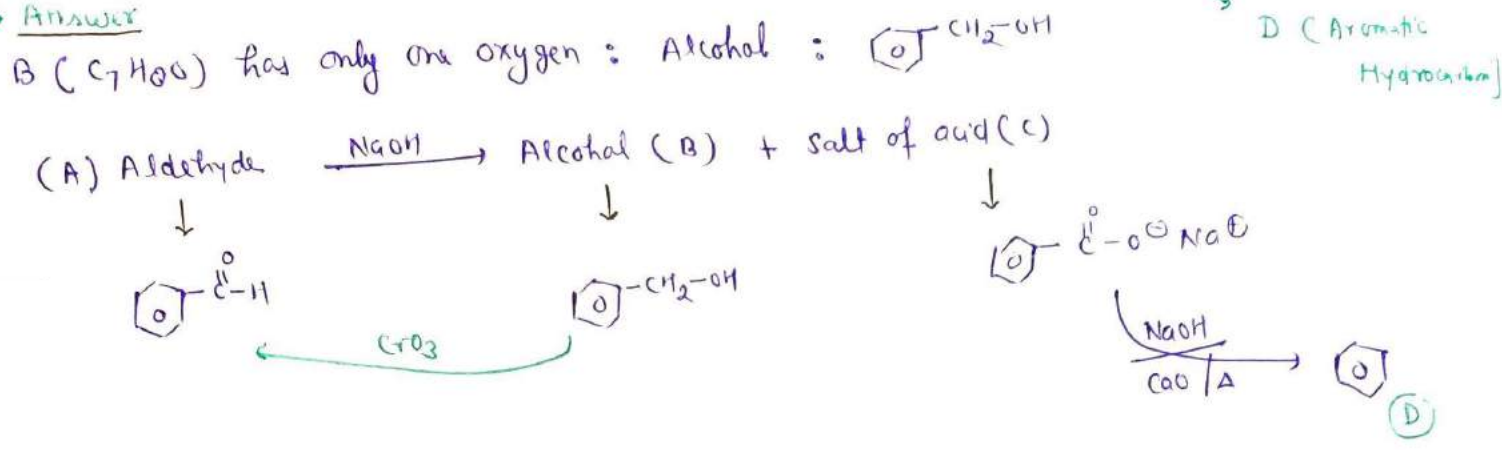 Answer
B ( C7H8O) has only one oxygen : Alcohal : CH2-OH
D ( Aromatic
Hydrocarbon]
(A) Aldehyde NaOH Alcohal (B) + Salt of acid (C)
O
C-H
CH2-OH
O
C-O⊖ Na⊕
CrO3
NaOH
CaO | Δ
D